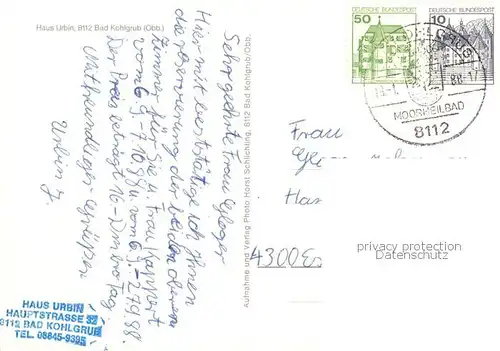 Haus Urbin, 8112 Bad Kohlgrub (Obb.)
Sehr geehrte Frau
Hiermit bestätige ich Ihnen
die Reservierung der beiden oberen
Zimmer für Sie u. Frau
vom 6.9.-7.10.88 u. vom 6.9.-27.9.88.
Der Preis beträgt 16.- Zimmer Tag.
Mit freundlichen Grüßen
Urbin J.
HAUS URBIN
HAUPTSTRASSE 32
8112 BAD KOHLGRUB
TEL. 08845-9395
Aufnahme und Verlag Photo Horst Schlichting, 8112 Bad Kohlgrub/Obb.
50 DEUTSCHE BUNDESPOST
10 DEUTSCHE BUNDESPOST
MOORHEILBAD
8112
Frau
4300
privacy protection
Datenschutz